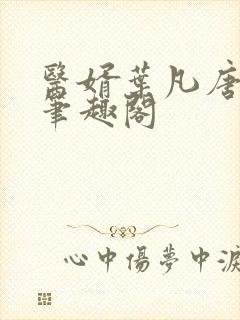 醫婿葉凡唐
筆趣閣
心中傷夢中淚